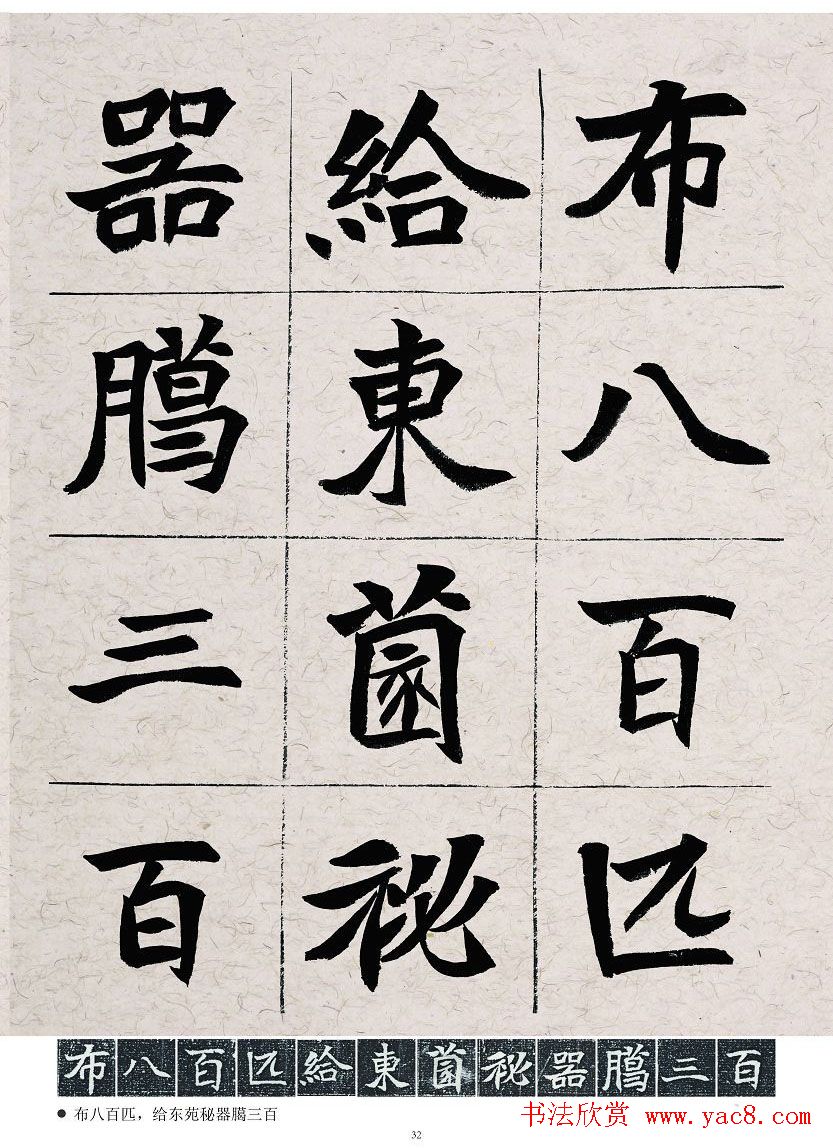 布八百匹
給東薗祕
器臈三百
布八百匹給東薗祕器臈三百
● 布八百匹，给东苑秘器臈三百
书法欣赏 www.yac8.com
32